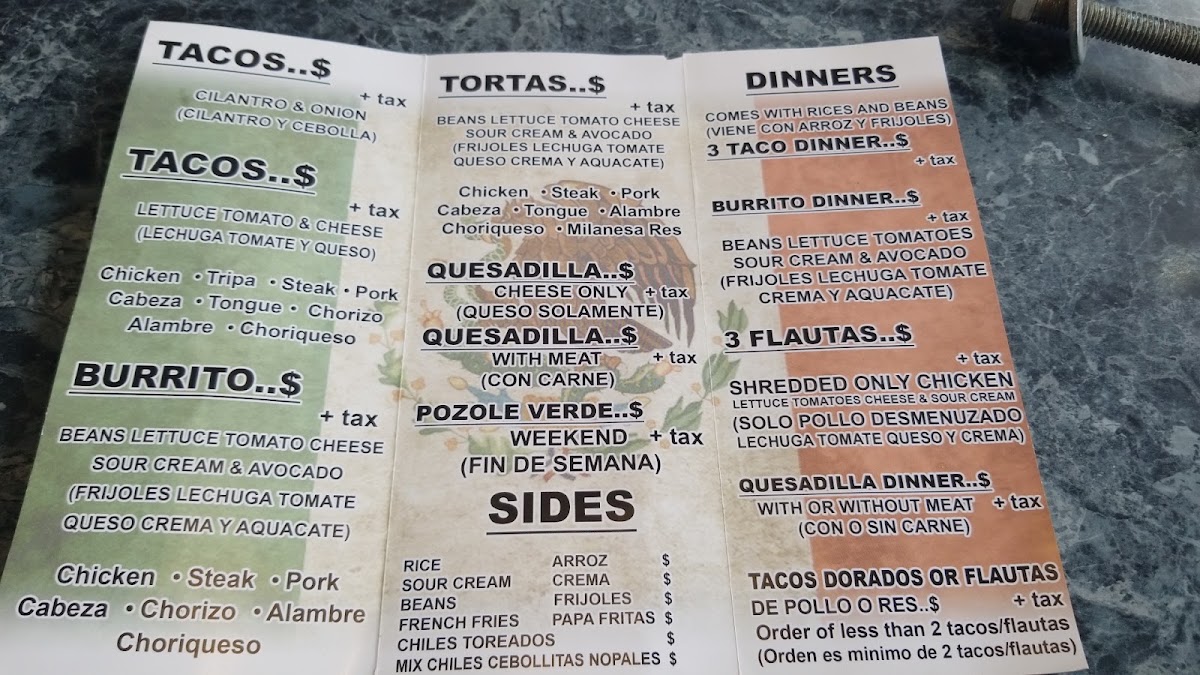 TACOS..$
+ tax
CILANTRO & ONION
(CILANTRO Y CEBOLLA)
TACOS..$
+ tax
LETTUCE TOMATO & CHEESE
(LECHUGA TOMATE Y QUESO)
Chicken • Tripa • Steak • Pork
Cabeza • Tongue • Chorizo
Alambre • Choriqueso
BURRITO..$
+ tax
BEANS LETTUCE TOMATO CHEESE
SOUR CREAM & AVOCADO
(FRIJOLES LECHUGA TOMATE
QUESO CREMA Y AQUACATE)
Chicken • Steak • Pork
Cabeza • Chorizo • Alambre
Choriqueso
TORTAS..$
+ tax
BEANS LETTUCE TOMATO CHEESE
SOUR CREAM & AVOCADO
(FRIJOLES LECHUGA TOMATE
QUESO CREMA Y AQUACATE)
Chicken • Steak • Pork
Cabeza • Tongue • Alambre
Choriqueso • Milanesa Res
QUESADILLA..$
CHEESE ONLY + tax
(QUESO SOLAMENTE)
QUESADILLA..$
WITH MEAT + tax
(CON CARNE)
POZOLE VERDE..$
WEEKEND + tax
(FIN DE SEMANA)
SIDES
RICE ARROZ $
SOUR CREAM CREMA $
BEANS FRIJOLES $
FRENCH FRIES PAPA FRITAS $
CHILES TOREADOS $
MIX CHILES CEBOLLITAS NOPALES $
DINNERS
COMES WITH RICES AND BEANS
(VIENE CON ARROZ Y FRIJOLES)
3 TACO DINNER..$
+ tax
BURRITO DINNER..$
+ tax
BEANS LETTUCE TOMATOES
SOUR CREAM & AVOCADO
(FRIJOLES LECHUGA TOMATE
CREMA Y AQUACATE)
3 FLAUTAS..$
+ tax
SHREDDED ONLY CHICKEN
LETTUCE TOMATOES CHEESE & SOUR CREAM
(SOLO POLLO DESMENUZADO
LECHUGA TOMATE QUESO Y CREMA)
QUESADILLA DINNER..$
WITH OR WITHOUT MEAT + tax
(CON O SIN CARNE)
TACOS DORADOS OR FLAUTAS
DE POLLO O RES..$ + tax
Order of less than 2 tacos/flautas
(Orden es minimo de 2 tacos/flautas)